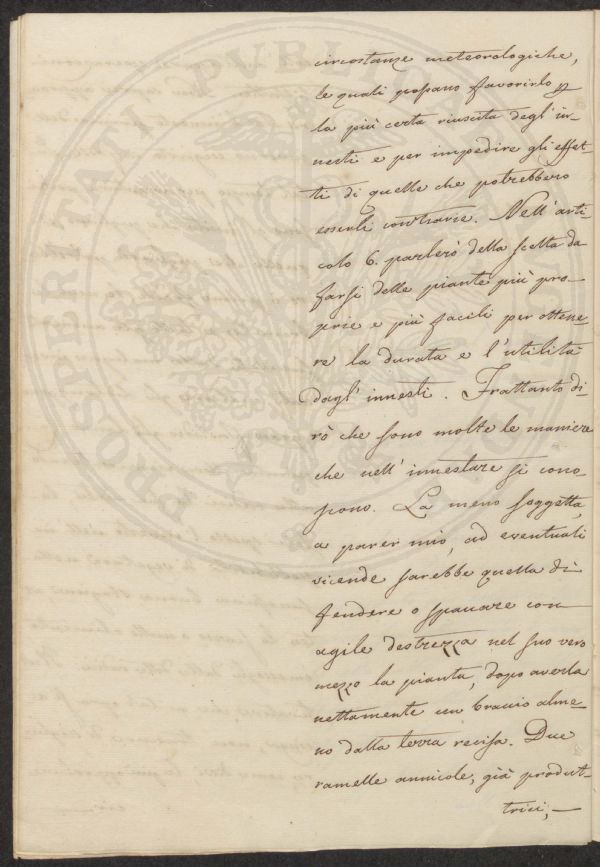 circostanze meteorologiche,
le quali possano favorirlo p
la più certa riuscita degl' in-
nesti e per impedire gli effet-
ti di quelle che potrebbero
esserli contrarie. Nell' arti-
colo 6. parlerò della scelta da
farsi delle piante più pro-
prie e più facili per ottene-
re la durata e l'utilità
dagl' innesti. Frattanto di-
rò che sono molte le maniere
che nell' innestare si cono-
scono. La meno soggetta,
a parer mio, ad eventuali
vicende sarebbe quella di
fendere o spaccare con
agile destrezza nel suo vero
mezzo la pianta, dopo averla
nettamente un braccio alme-
no dalla terra recisa. Due
ramelle annicole, già produt-
trici,
PROSPERITATI PUBLICAE